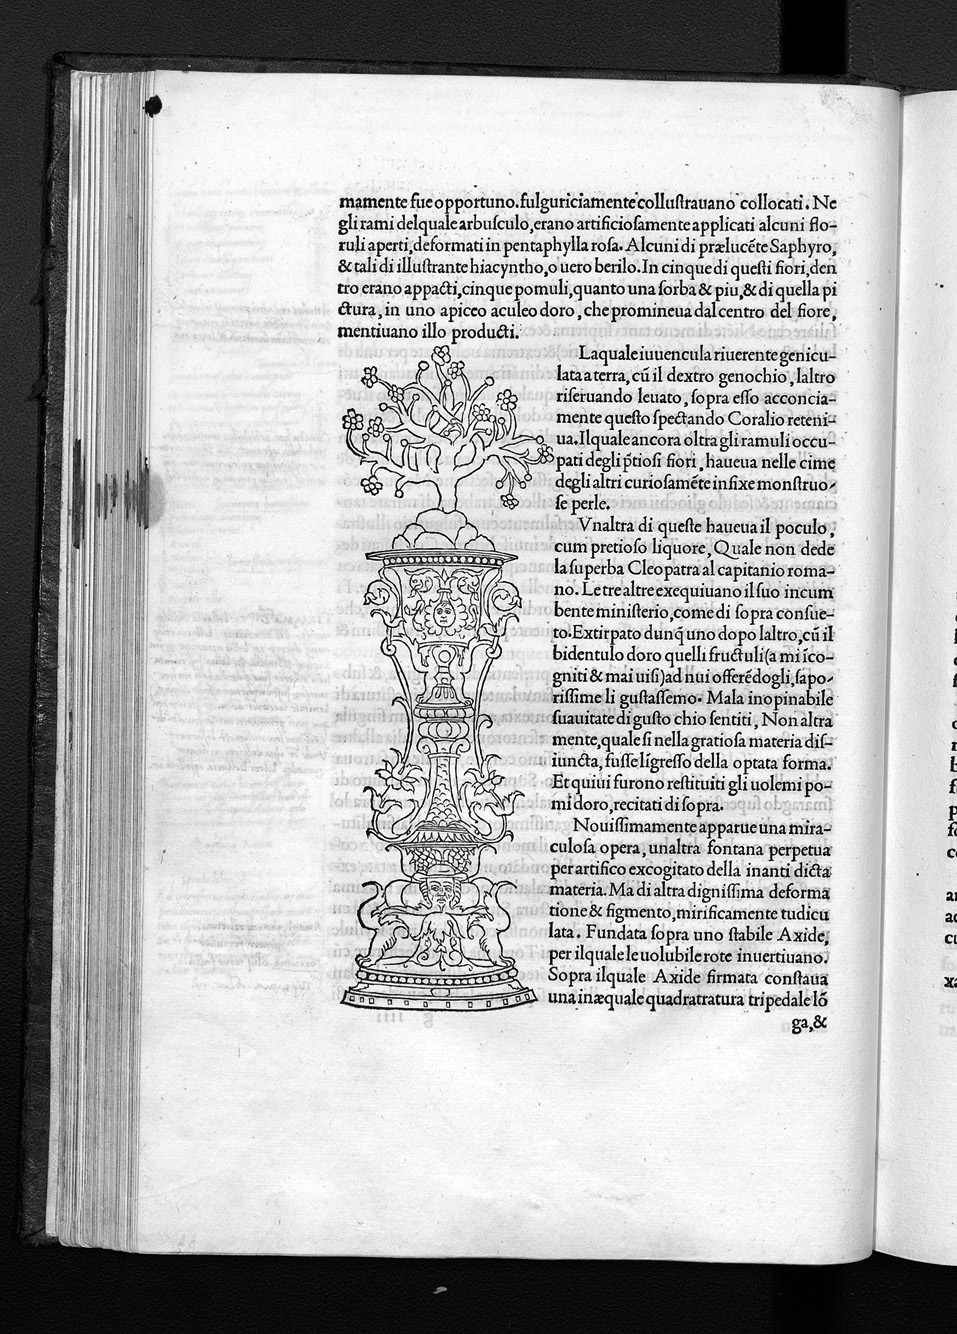 mamente fue opportuno. fulguriciamente collustrauano collocati. Ne
gli rami delquale arbusculo, erano artificiosamente applicati alcuni flo-
ruli aperti, deformati in pentaphylla rosa. Alcuni di prælucẽte Saphyro,
& tali di illustrante hiacyntho, o uero berilo. In cinque di questi fiori, den
tro erano appacti, cinque pomuli, quanto una sorba & piu, & di quella pi
ctura, in uno apiceo aculeo doro, che promineua dal centro del fiore,
mentiuano illo producti.
Laquale iuuencula riuerente genicu-
lata a terra, cũ il dextro genochio, laltro
riseruando leuato, sopra esso acconcia-
mente questo spectando Coralio reteni-
ua. Ilquale ancora oltra gli ramuli occu-
pati degli p̃tiosi fiori, haueua nelle cime
degli altri curiosamẽte infixe monstruo-
se perle.
Vnaltra di queste haueua il poculo,
cum pretioso liquore, Quale non dede
la superba Cleopatra al capitanio roma-
no. Le tre altre exequiuano il suo incum
bente ministerio, come di sopra consue-
to. Extirpato dunq̃ uno dopo laltro, cũ il
bidentulo doro quelli fructuli (a mi ĩco-
gniti & mai uisi) ad nui offerẽdogli, sapo-
rissime li gustassemo. Mala inopinabile
suauitate di gusto chio sentiti, Non altra
mente, quale si nella gratiosa materia dis-
iuncta, fusse ligresso della optata forma.
Et quiui furono restituiti gli uolemi po-
mi doro, recitati di sopra.
Nouissimamente apparue una mira-
culosa opera, unaltra fontana perpetua
per artifico excogitato della inanti dicta
materia. Ma di altra dignissima deforma
tione & figmento, mirificamente tudicu
lata. Fundata sopra uno stabile Axide,
per ilquale le uolubile rote inuertiuano.
Sopra ilquale Axide firmata constaua
una inæquale quadratratura tripedale lõ
ga, &